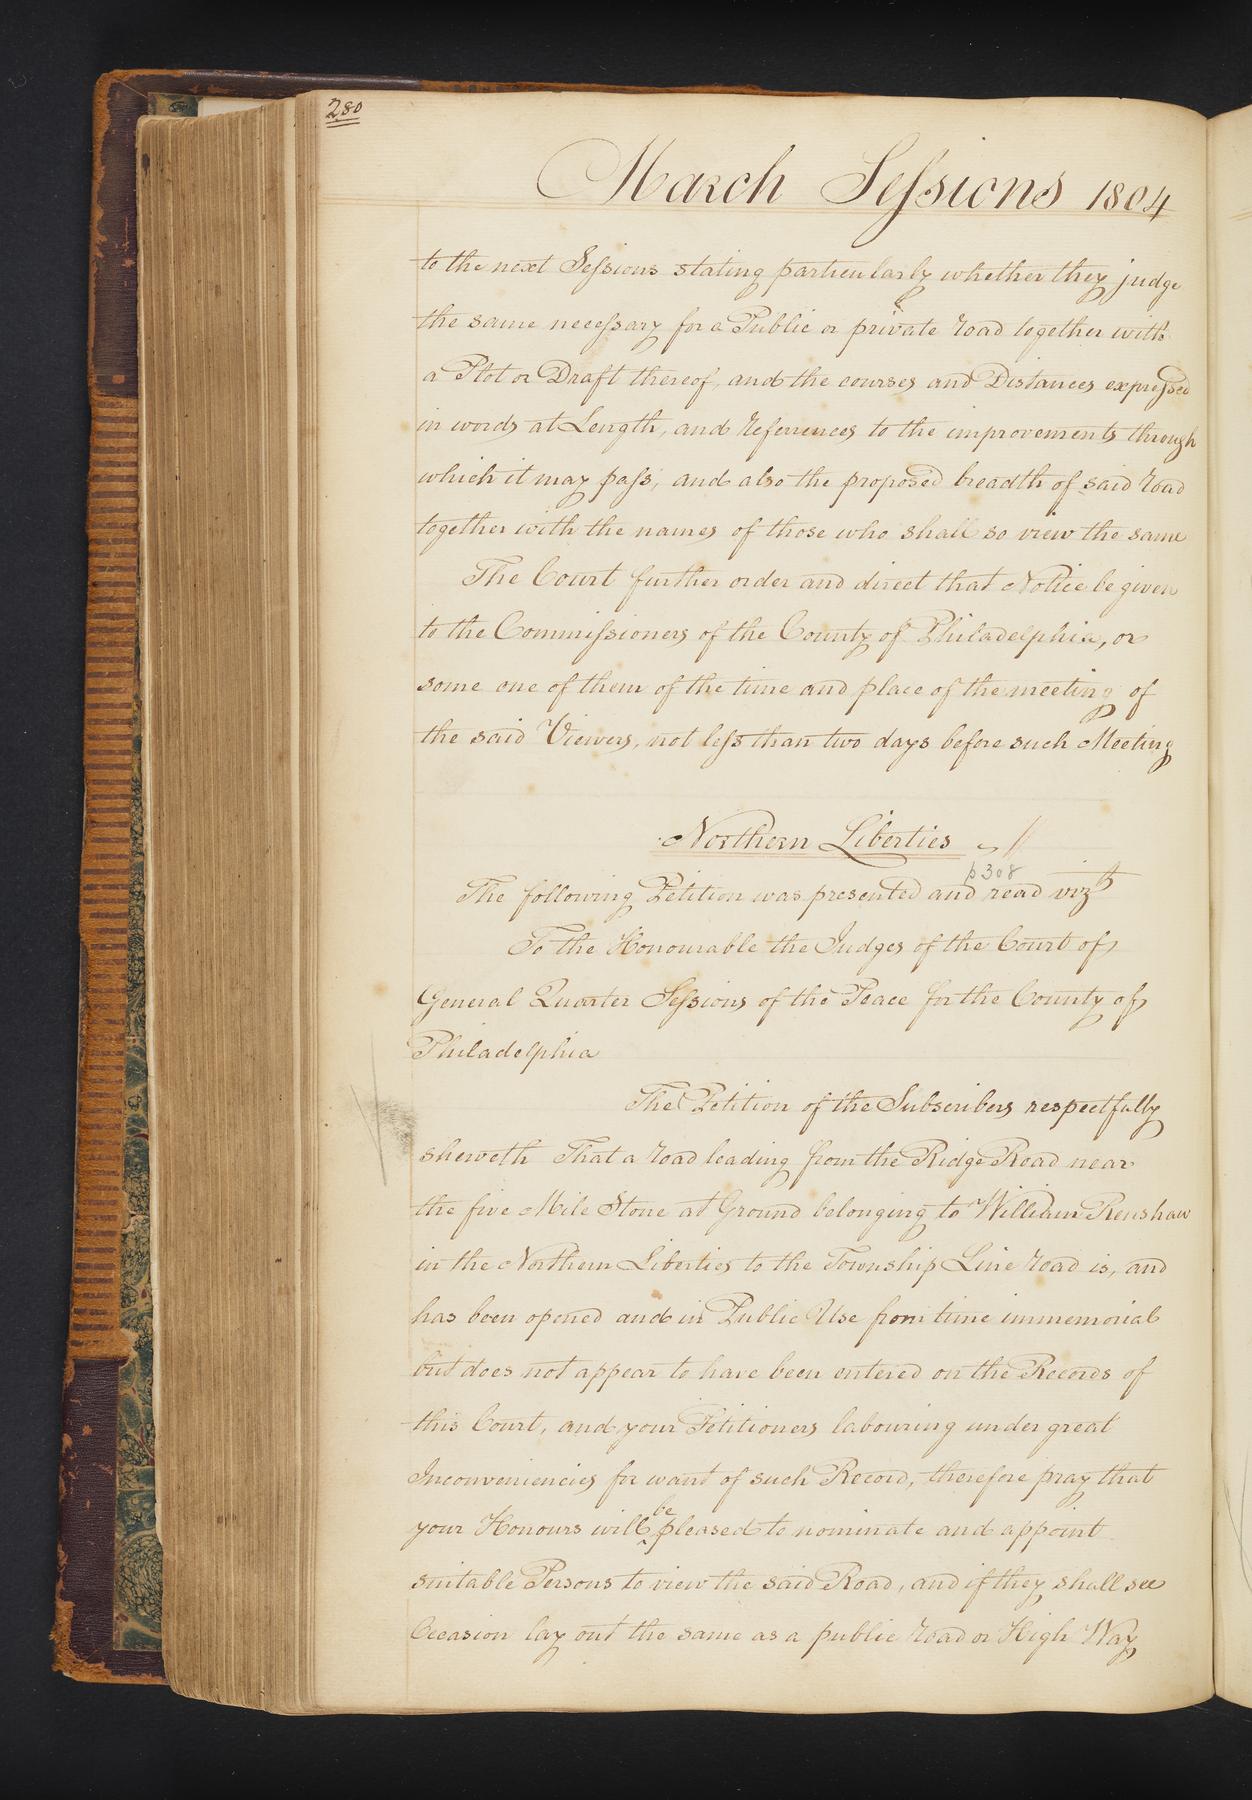 280
March Sessions 1804
to the next Sessions stating particularly whether they judge
the same necessary for a Public or private road together with
a Plot or Draft thereof, and the courses and Distances expressed
in words at Length, and references to the improvements through
which it may pass, and also the proposed breadth of said road
together with the names of those who shall so view the same
The Court further order and direct that Notice be given
to the Commissioners of the County of Philadelphia, or
some one of them of the time and place of the meeting of
the said Viewers, not less than two days before such Meeting
Northern Liberties
p 308
The following Petition was presented and read vizt
To the Honourable the Judges of the Court of
General Quarter Sessions of the Peace for the County of
Philadelphia
The Petition of the Subscribers respectfully
sheweth That a road leading from the Ridge Road near
the five Mile Stone at Ground belonging to William Renshaw
in the Northern Liberties to the Township Line road is, and
has been opened and in Public Use from time immemorial
but does not appear to have been entered on the Records of
this Court, and your Petitioners labouring under great
Inconveniencies for want of such Record, therefore pray that
your Honours will be pleased to nominate and appoint
suitable Persons to view the said Road, and if they shall see
Occasion lay out the same as a public road or High Way